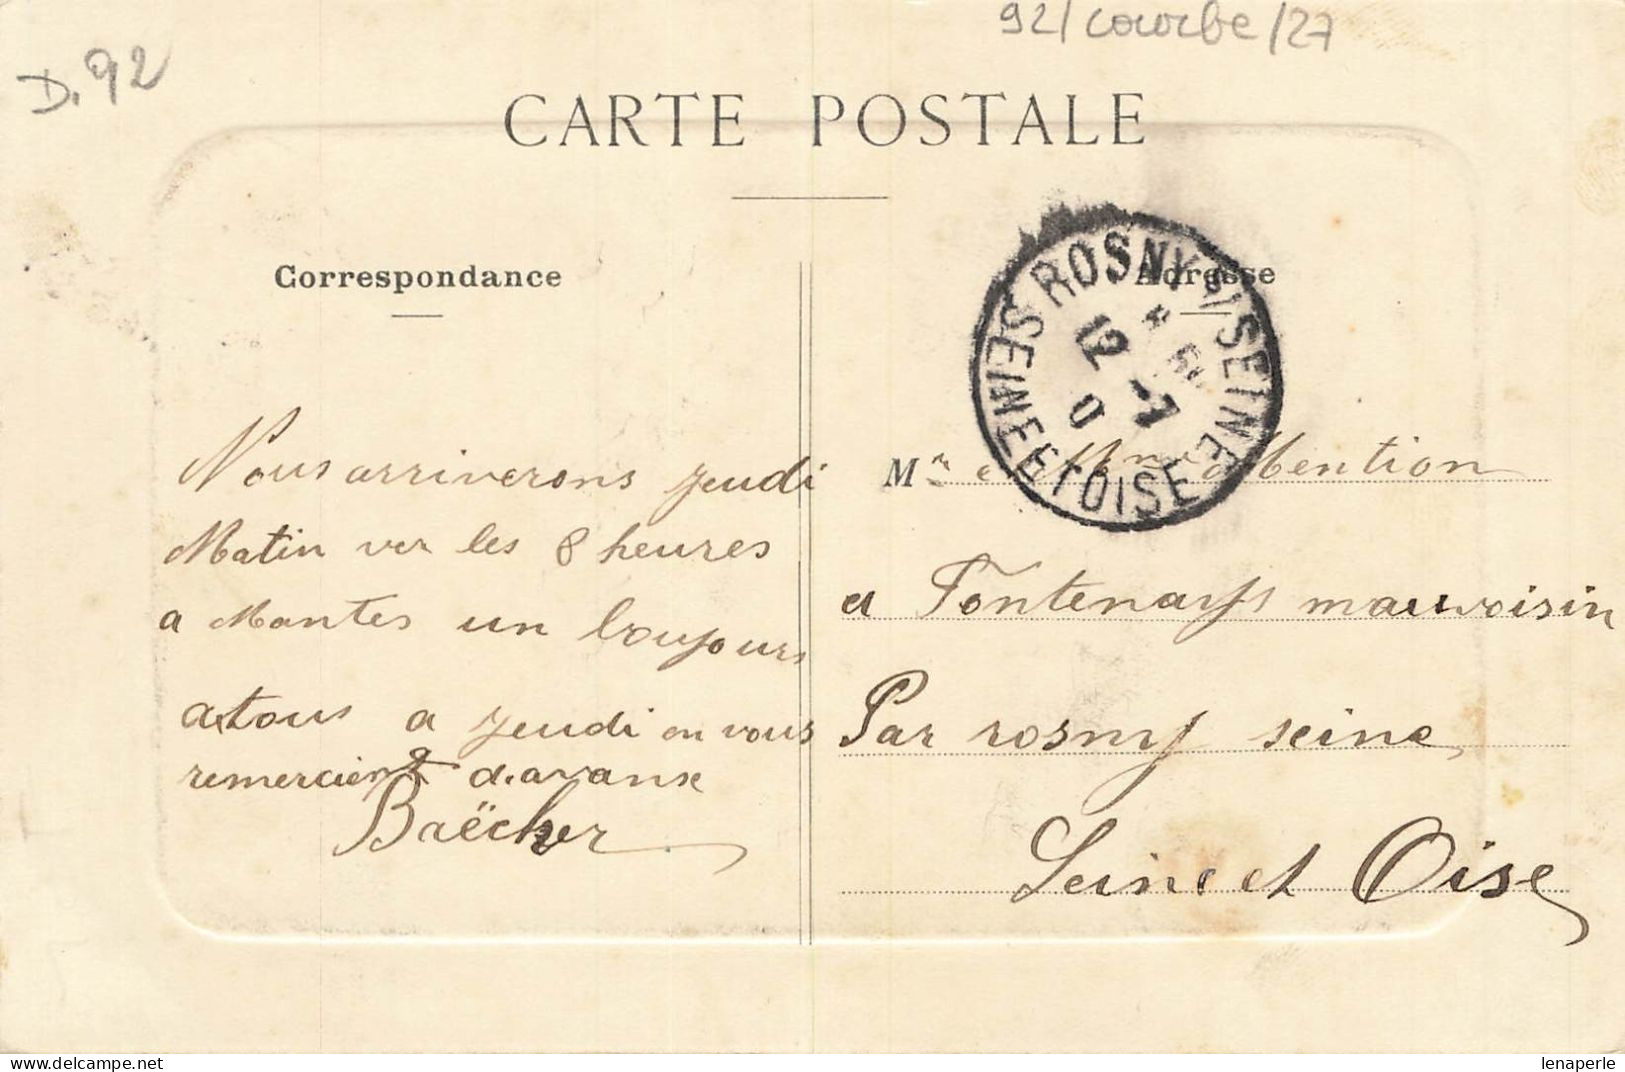 92/courbe/27
D. 92
CARTE POSTALE
Correspondance
Adresse
ROSNY-S-SEINE
12 -7
0
SEINE ET OISE
Nous arriverons Jeudi
Matin ver les 8 heures
a Mantes un bonjours
a tous a Jeudi on vous
remercient d.avanse
Baëcher
Mr e Mme Mention
a Fontenays mauvoisin
Par rosny seine
Seine et Oise
lenaperle